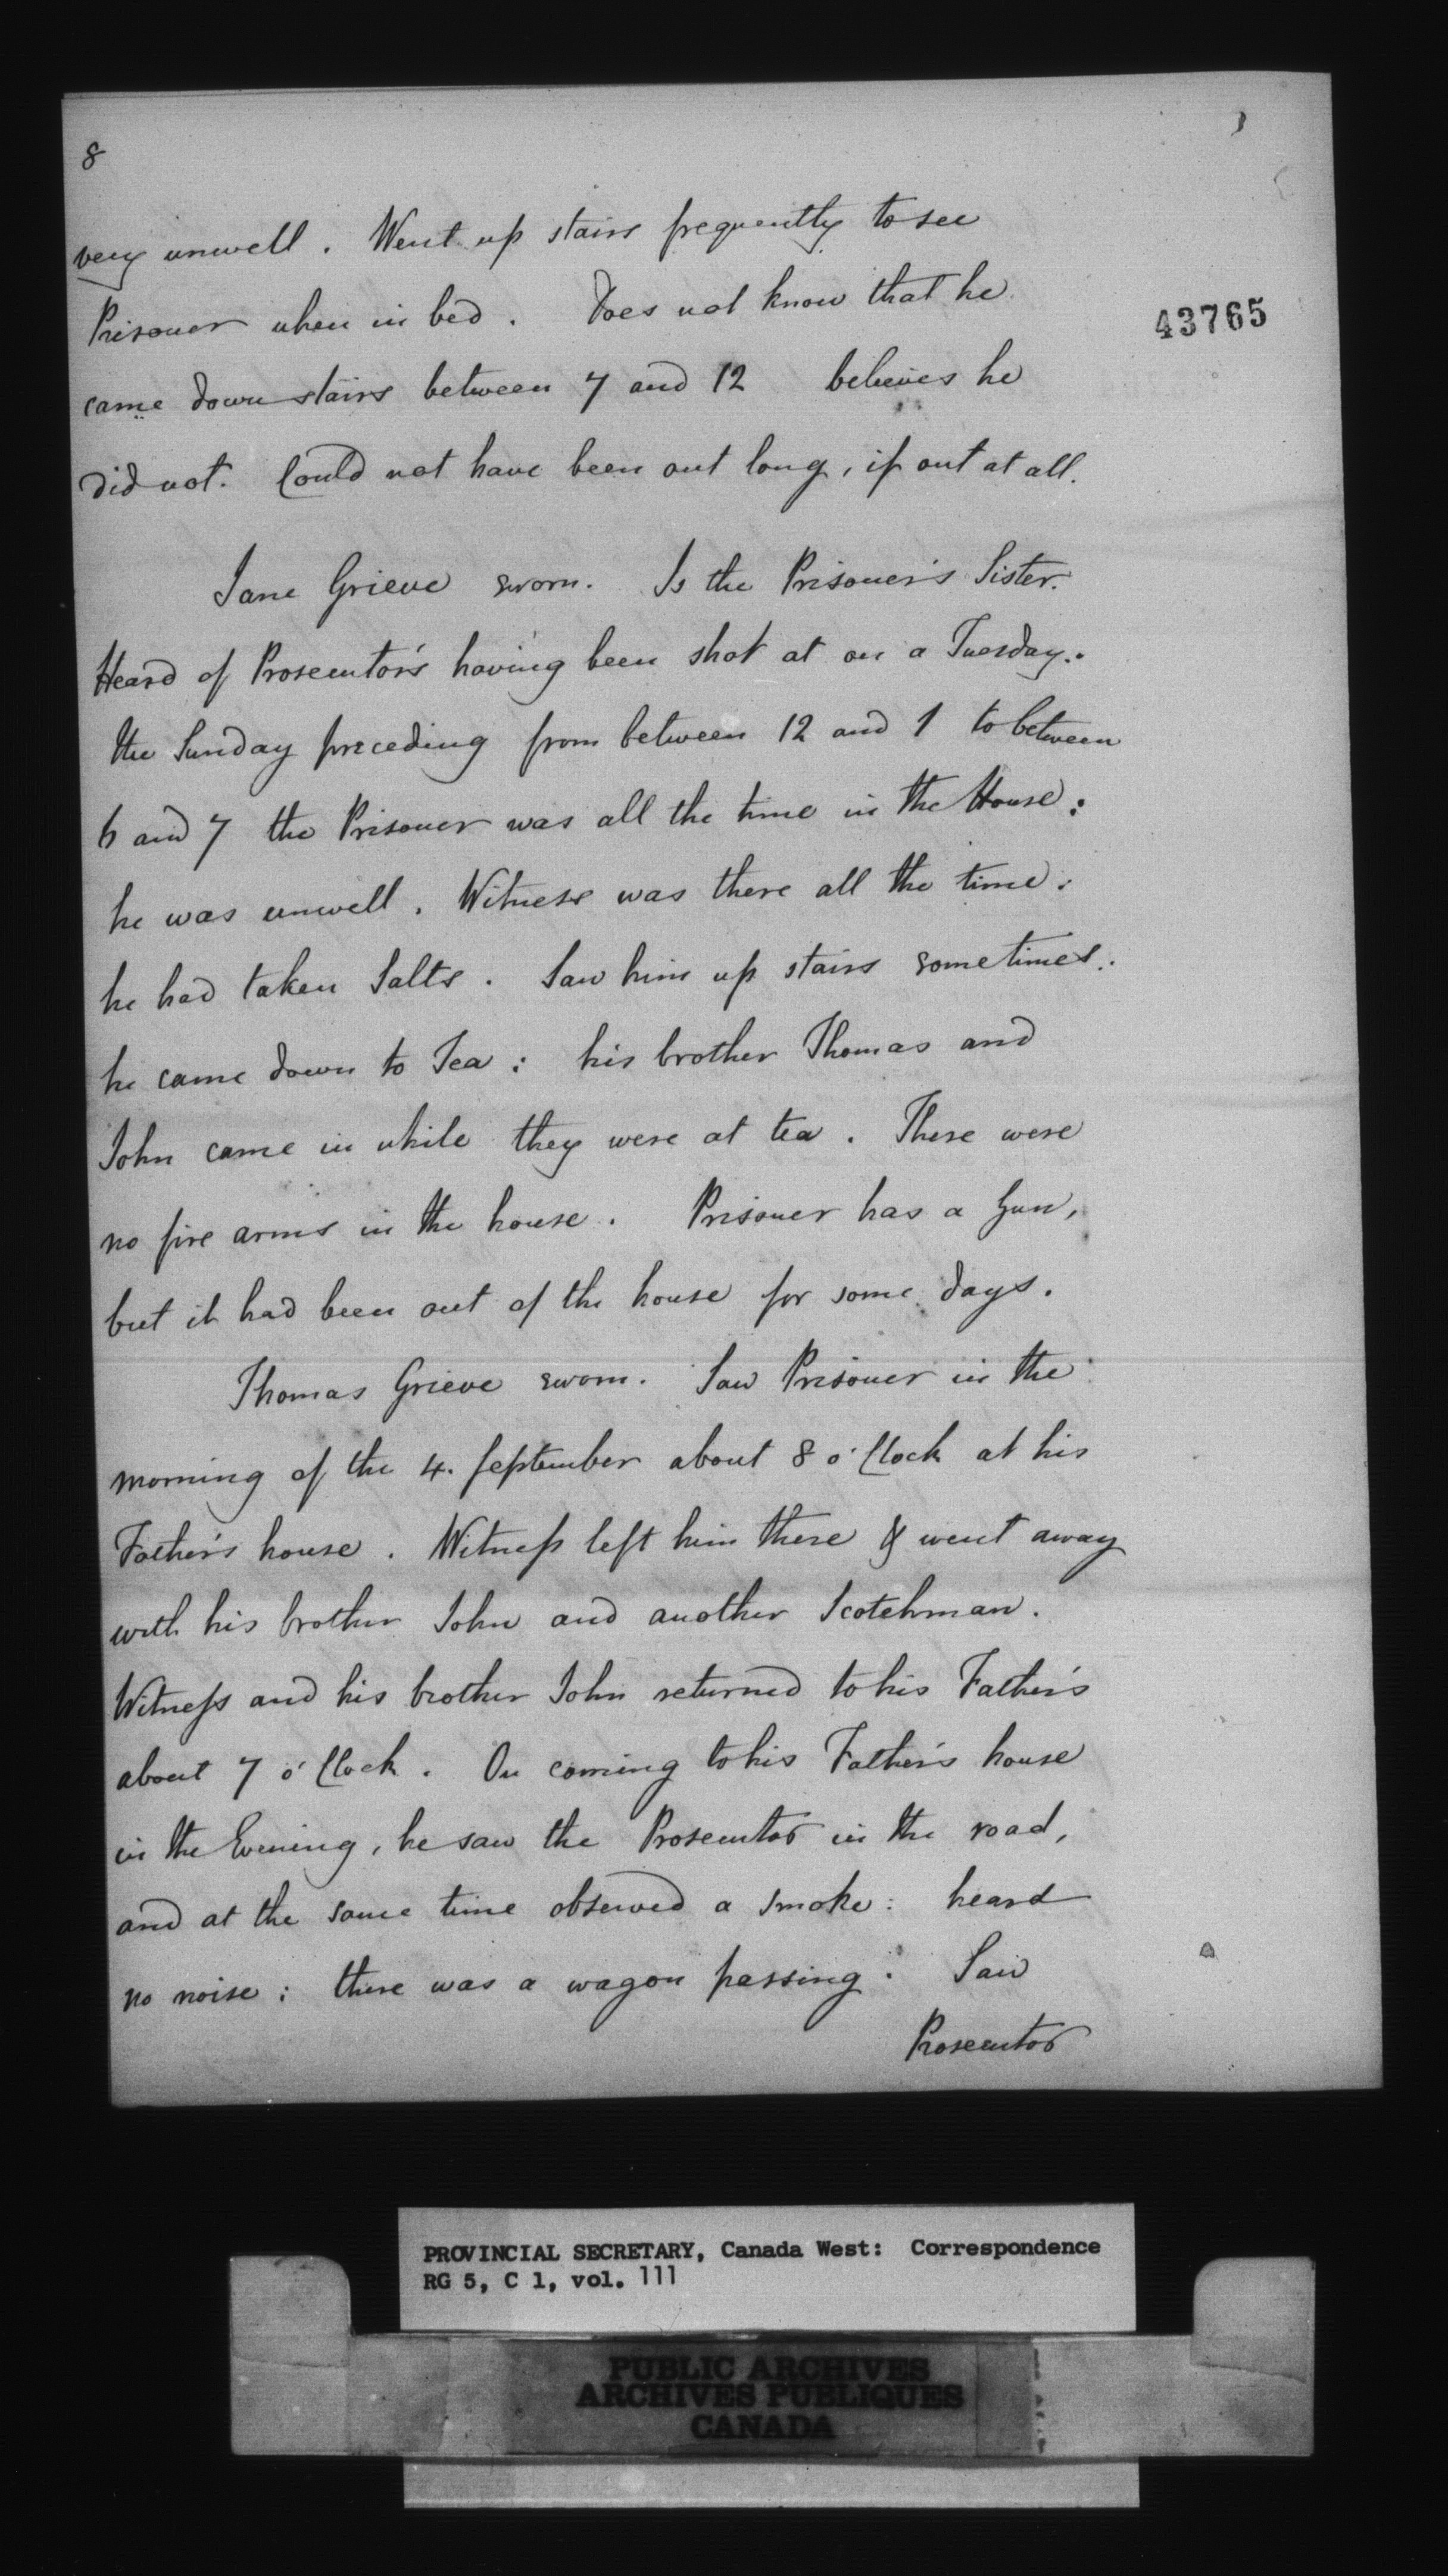 8
very unwell. Went up stairs frequently to see
Prisoner when in bed. Does not know that he
43765
came down stairs between 7 and 12 believes he
did not. Could not have been out long, if out at all.
Jane Grieve sworn. Is the Prisoner's Sister.
Heard of Prosecutor's having been shot at on a Tuesday.
the Sunday preceding from between 12 and 1 to between
6 and 7 the Prisoner was all the time in the House:
he was unwell. Witness was there all the time:
he had taken Salts. Saw him up stairs sometimes:
he came down to Tea: his brother Thomas and
John came in while they were at tea. There were
no fire arms in the house. Prisoner has a Gun,
but it had been out of the house for some days.
Thomas Grieve sworn. Saw Prisoner in the
morning of the 4. September about 8 o'Clock at his
Father's house. Witness left him there & went away
with his brother John and another Scotchman.
Witness and his brother John returned to his Father's
about 7 o'Clock. On coming to his Father's house
in the Evening, he saw the Prosecutor in the road,
and at the same time observed a smoke: heard
no noise: there was a wagon passing: Saw
Prosecutor
PROVINCIAL SECRETARY, Canada West: Correspondence
RG 5, C 1, vol. 111
PUBLIC ARCHIVES
ARCHIVES PUBLIQUES
CANADA